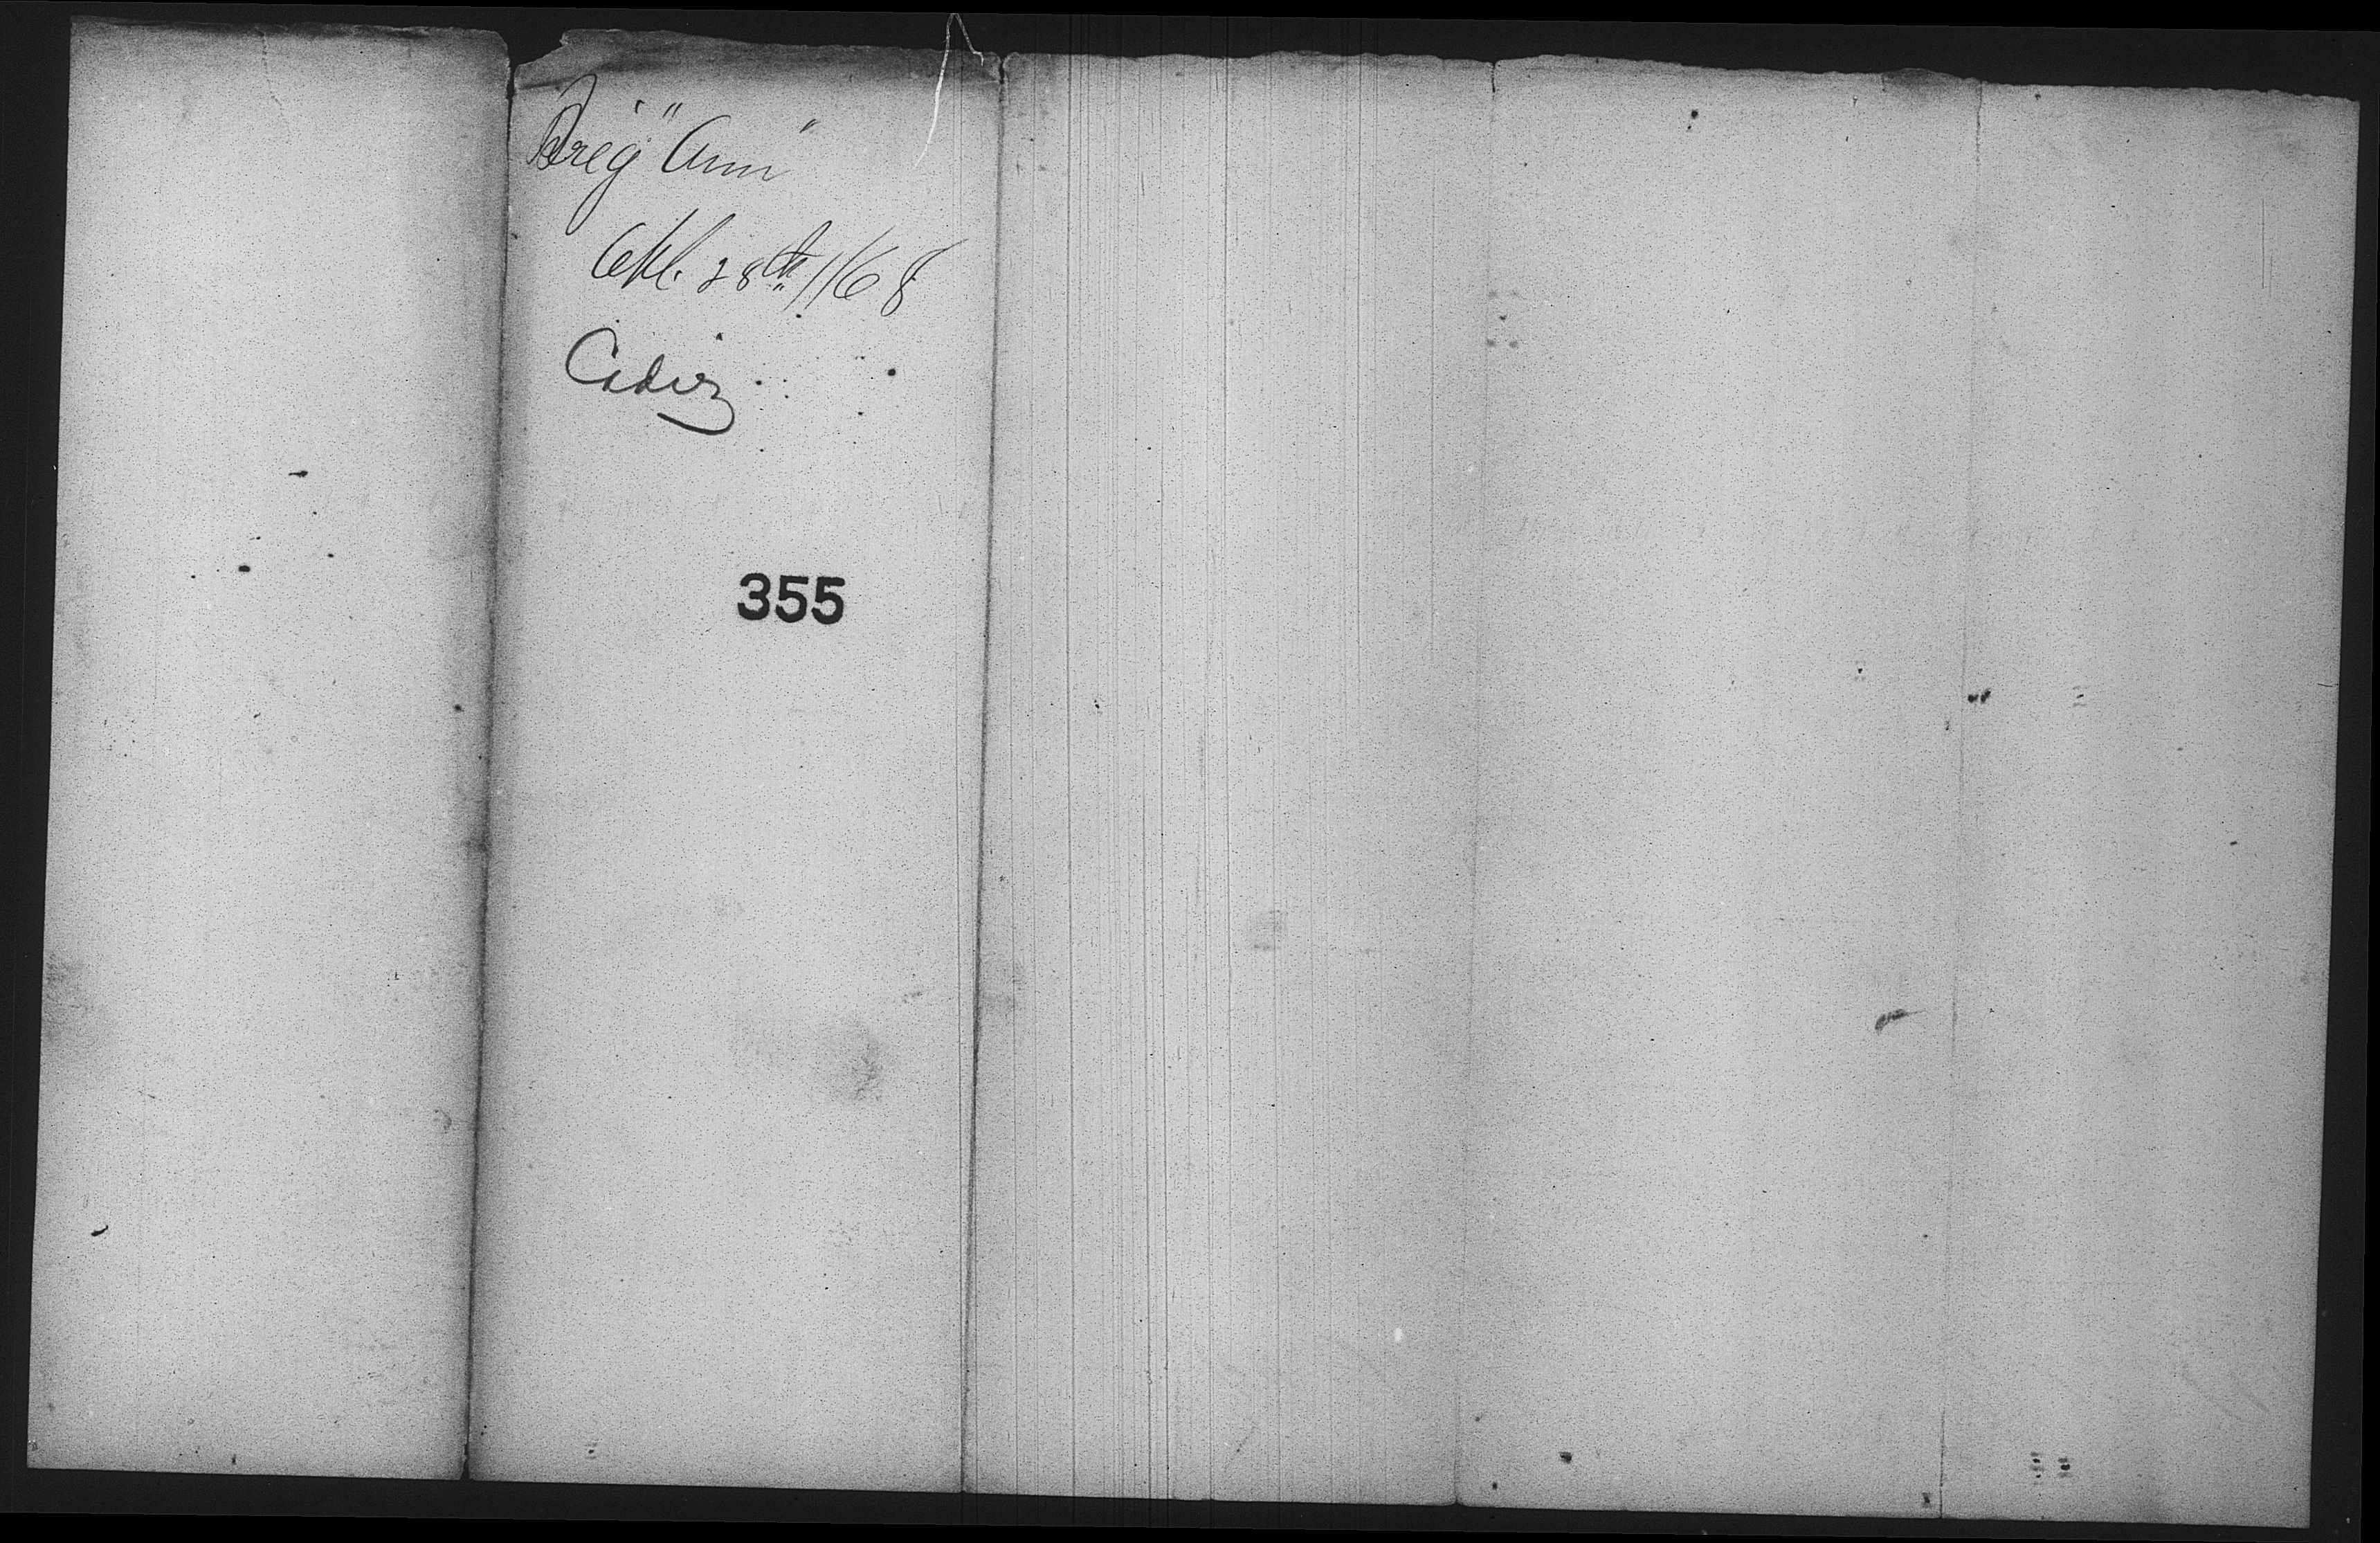 Brig "Ann"
Oct. 28th 1868
Cadiz
355